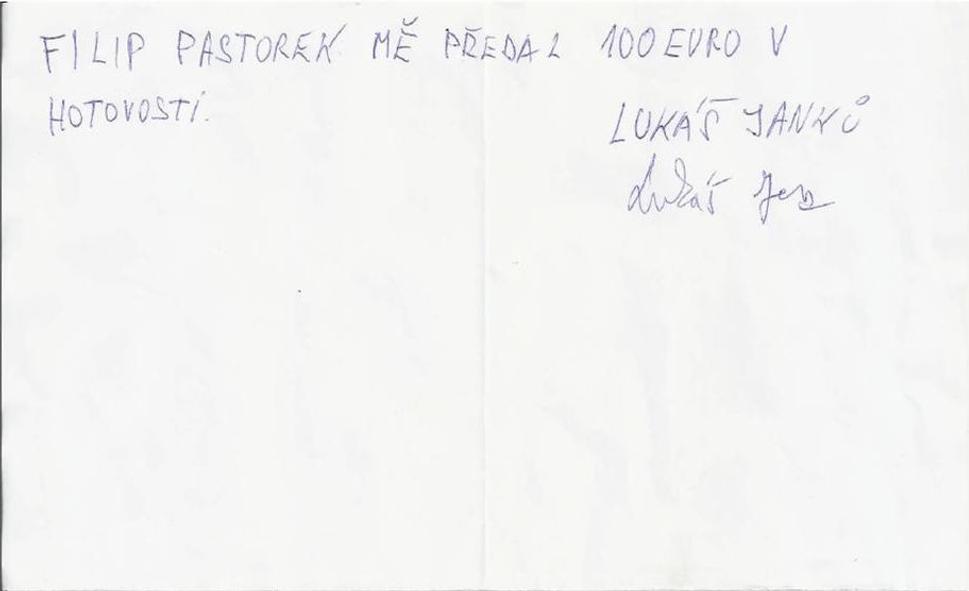 FILIP PASTOREK MĚ PŘEDAL 100 EURO V
HOTOVOSTÍ.
LUKÁŠ JANKŮ
Lukáš